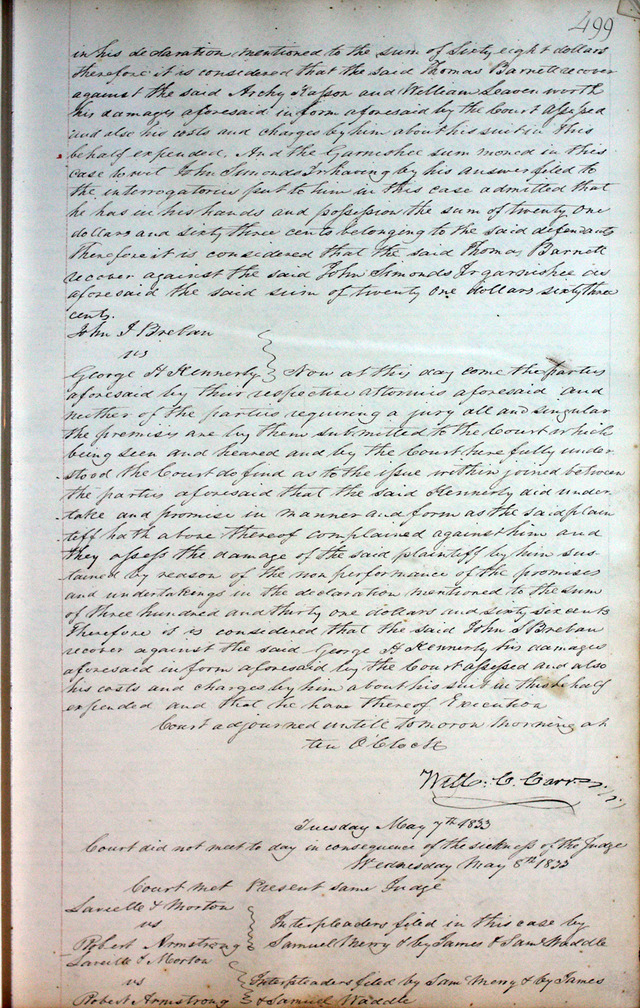 499
in his declaration mentioned to the sum of Sixty eight dollars
therefore it is considered that the said Thomas Barnett recover
against the said Archy Kasson and William Leavenworth
his damages aforesaid in form aforesaid by the Court assessed
and also his costs and charges by him about his suit in this
behalf expended. And the Garnishee summoned in this
case to wit John Simonds Jr having by his answer filed to
the interrogatories put to him in this case admitted that
he has in his hands and possession the sum of twenty one
dollars and sixty three cents belonging to the said defendants
Therefore it is considered that the said Thomas Barnett
recover against the said John Simonds Jr garnishee as
aforesaid the said sum of twenty one dollars sixty three
cents.
John Brelau
vs
George H Kennerly Now at this day come the parties
aforesaid by their respective attornies aforesaid and
neither of the parties requiring a jury all and singular
the premises are by them submitted to the Court which
being seen and heared and by the Court here fully under
stood the Court do find as to the issue within joined between
the parties aforesaid that the said Kennerly did under
take and promise in manner and form as the said plain
tiff hath above thereof complained against him and
they assess the damage of the said plaintiff by him sus
tained by reason of the non performance of the promises
and undertakings in the declaration mentioned to the sum
of three hundred and thirty one dollars and sixty six cents
Therefore it is considered that the said John Brelau
recover against the said George H Kennerly his damages
aforesaid in form aforesaid by the Court assessed and also
his costs and charges by him about his suit in this behalf
expended and that he have thereof Execution
Court adjourned untill tomorow morning at
ten O'Clock
Will: C. Carr
Tuesday May 7th 1833
Court did not meet to day in consequence of the sickness of the Judge
Wednesday May 8th 1833
Court met Present same Judge
Laveille & Morton
vs
Interpleaders filed in this case by
Robert Armstrong Samuel Merry & by James & Saml Waddle
Laveille & Morton
vs Interpleaders filed by Sam Merry & by James
Robert Armstrong & Samuel Waddle